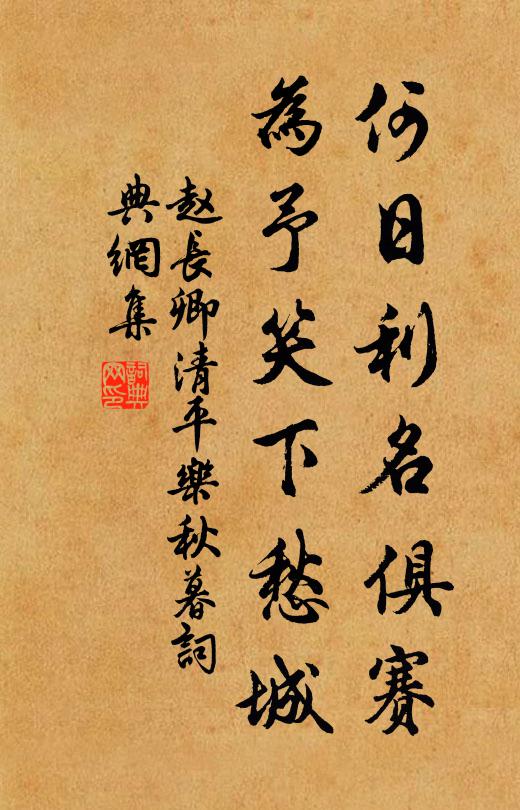 何日利名俱赛
為予笑下愁城
赵長卿清平樂秋暮詞
典網集
詞典網印